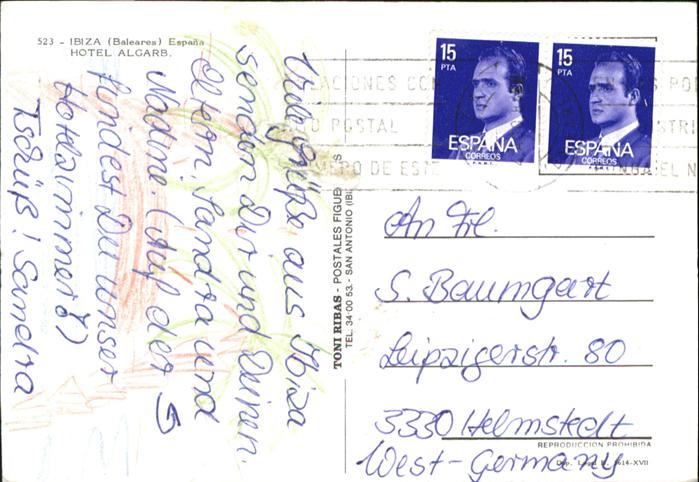 523 - IBIZA (Baleares) España
HOTEL ALGARB.
Viele Grüße aus Ibiza
senden Dir und Deinen
Eltern, Sandra und
Nadine. (Auf der 5
findest Du unser
Hotelzimmer!)
Tschüß! Sandra
TONI RIBAS - POSTALES FIGUE
S
TEL. 34-00 53. - SAN ANTONIO (IBI
15
PTA
ESPAÑA
CORREOS
15
PTA
ESPAÑA
CORREOS
LACIONES CON
POSTAL
MERO DE
EL N
An Frl.
S. Baumgart
Leipzigerstr. 80
3330 Helmstedt
REPRODUCCION PROHIBIDA
West-Germany
614-XVII